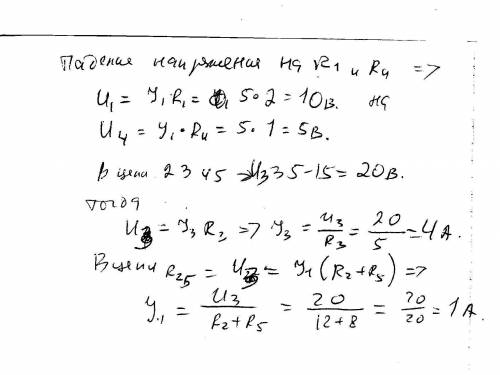 Падения напряжения на R1 и R4 =>
U1 = У1 R1 = 5·2 = 10 в. на
U4 = У1·R4 = 5·1 = 5 в.
В цепи 2 3 4 5 U3 35-15 = 20 В.
тогда
U3 = У3 R3 => У3 = U3/R3 = 20/5 = 4 А.
В цепи R25 = U3 = У1 (R2 + R5) =>
У1 = U3/(R2 + R5) = 20/(12+8) = 20/20 = 1 А.